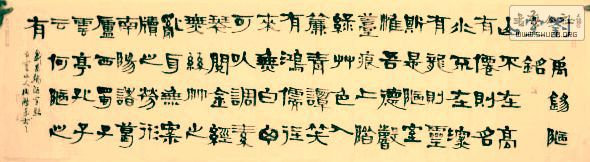 劉禹錫陋
室銘
山不在高
有僊則名
水不在深
有龍則靈
斯是陋室
惟吾德馨
薹痕上階
綠艸色入
簾青談笑
有鴻儒往
來無白丁
可以調素
琴閱金經
無絲竹之
亂耳無案
牘之勞形
南陽諸葛
廬西蜀子
雲亭孔子
云何陋之
有